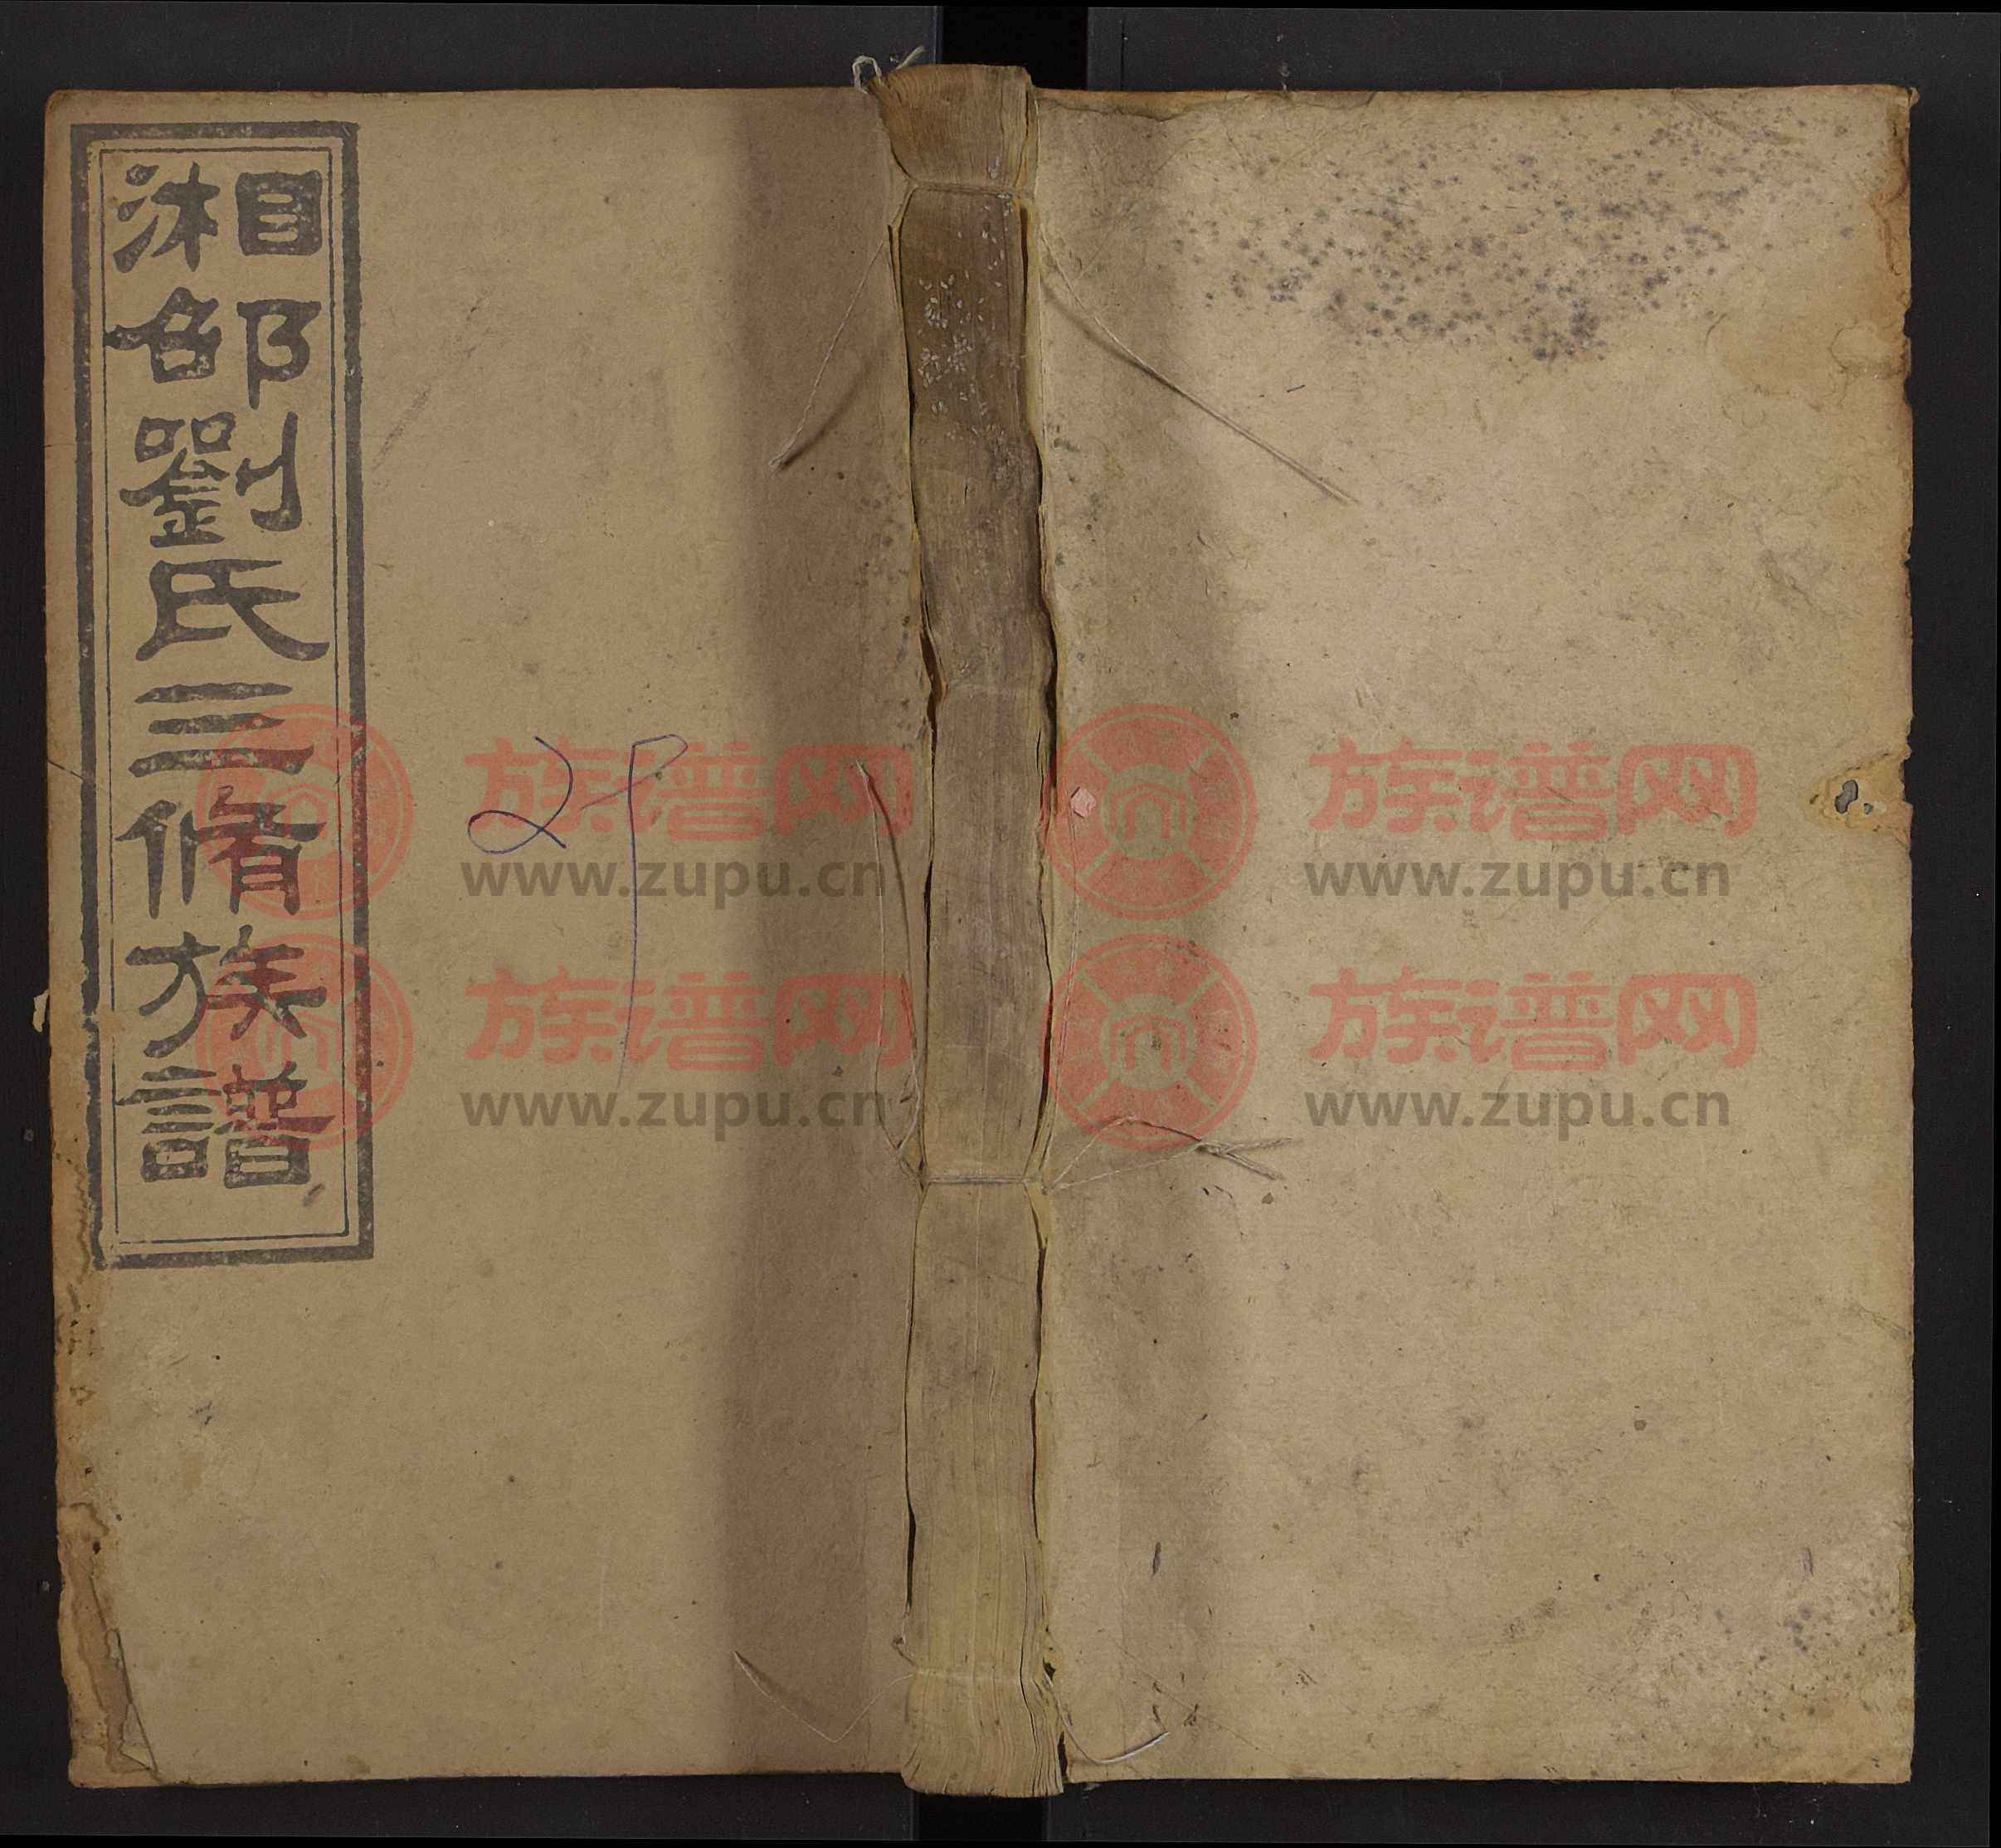 湘邵劉氏三脩族譜
29
族谱网
www.zupu.cn
族谱网
www.zupu.cn
族谱网
www.zupu.cn
族谱网
www.zupu.cn